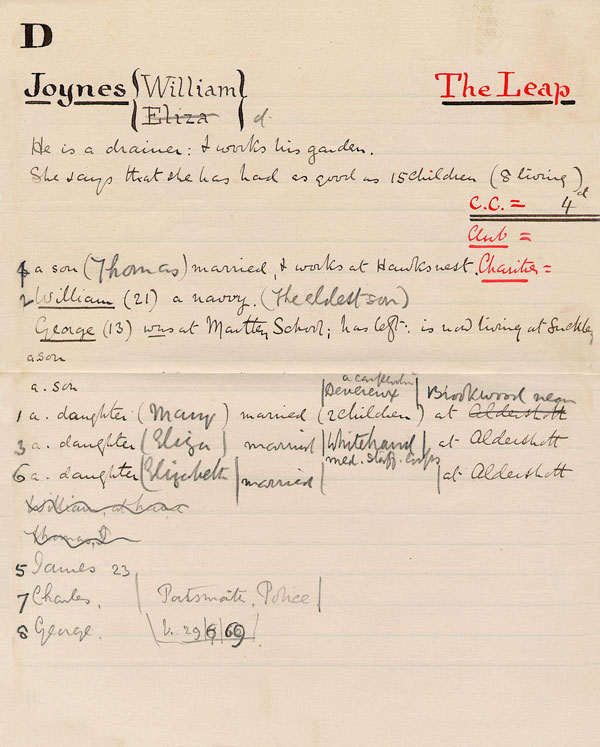 D
Joynes { William } The Leap
{ Eliza } d.
He is a drainer: & works his garden.
She says that she has had as good as 15 children (8 living)
C.C. = 4d
Club =
4 a son (Thomas) married, & works at Hawksnest. Charities =
2 William (21) a navvy. (The eldest son)
George (13) was at Martley School; has left: is now living at Suckley
a son
a. son
a carpenter
Devereux | Brookwood near
1 a. daughter (Mary) married (2 children) at Aldershott
3 a. daughter (Eliza) married | Whitehand | at Aldershott
med. Staff. Corps
6 a. daughter (Elizabeth | married | at Aldershott
William, at home
Thomas, D
5 James 23
7 Charles. | Portsmouth. Police |
8 George. | b. 29|6|69 |